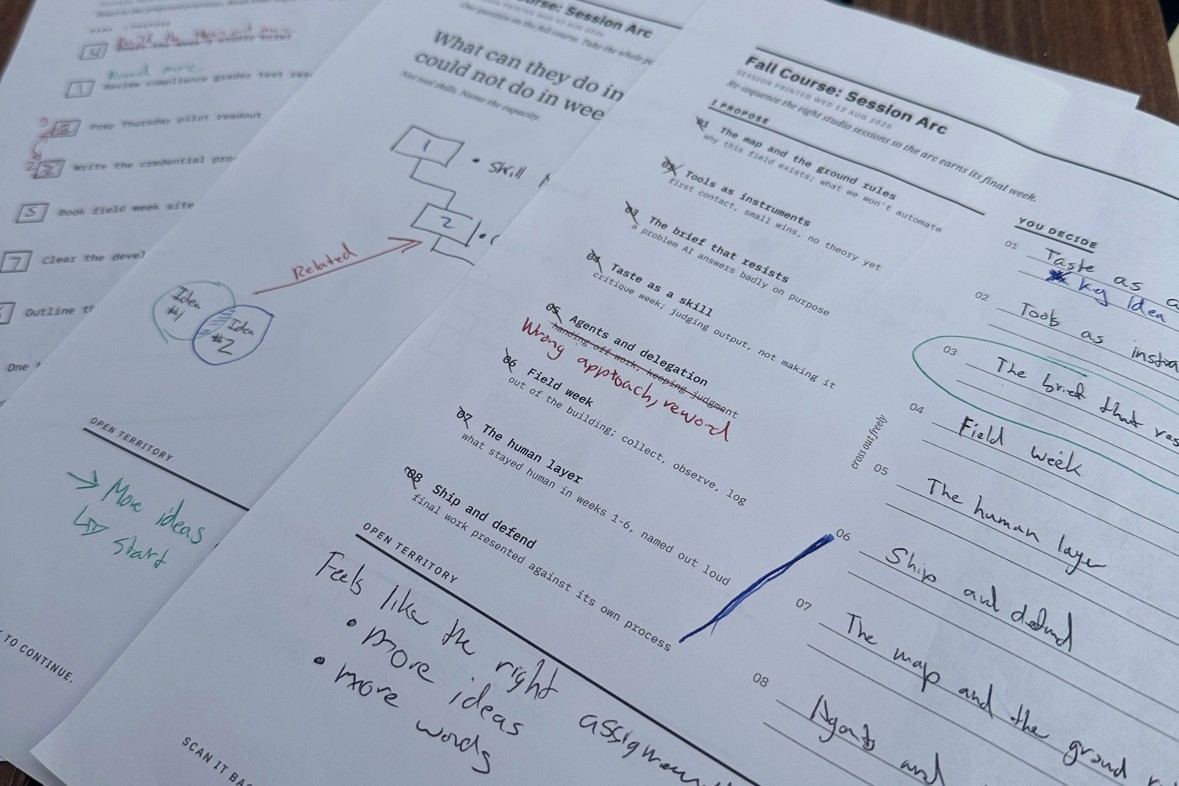 4
1
Review compliance grader test
Prep Thursday pilot readout
2
Write the credential
5
Book field week site
7
Clear the
Outline
One
TO CONTINUE.
Course: Session Arc
What can they do in
could not do in
Not tool skills. Name the capacity.
1
• Skill
2
Related
Idea
#1
Idea
#2
OPEN TERRITORY
→ More ideas
↳ Start
Fall Course: Session Arc
SESSION PRINTED WED 12 AUG 2026
Re-sequence the eight studio sessions so the arc earns its final week.
I PROPOSE
01 The map and the ground rules
why this field exists; what we won't automate
02 Tools as instruments
first contact, small wins, no theory yet
03 The brief that resists
a problem AI answers badly on purpose
04 Taste as a skill
critique week; judging output, not making it
05 Agents and delegation
handing off work, keeping judgment
Wrong approach, reword
06 Field week
out of the building; collect, observe, log
07 The human layer
what stayed human in weeks 1-6, named out loud
08 Ship and defend
final work presented against its own process
OPEN TERRITORY
Feels like the right
• more ideas
• more words
SCAN IT
YOU DECIDE
01 Taste as
key idea
02 Tools as
03 The brief that
04 Field week
cross out freely
05 The human layer
06 Ship and defend
07 The map and the ground
08 Agents and